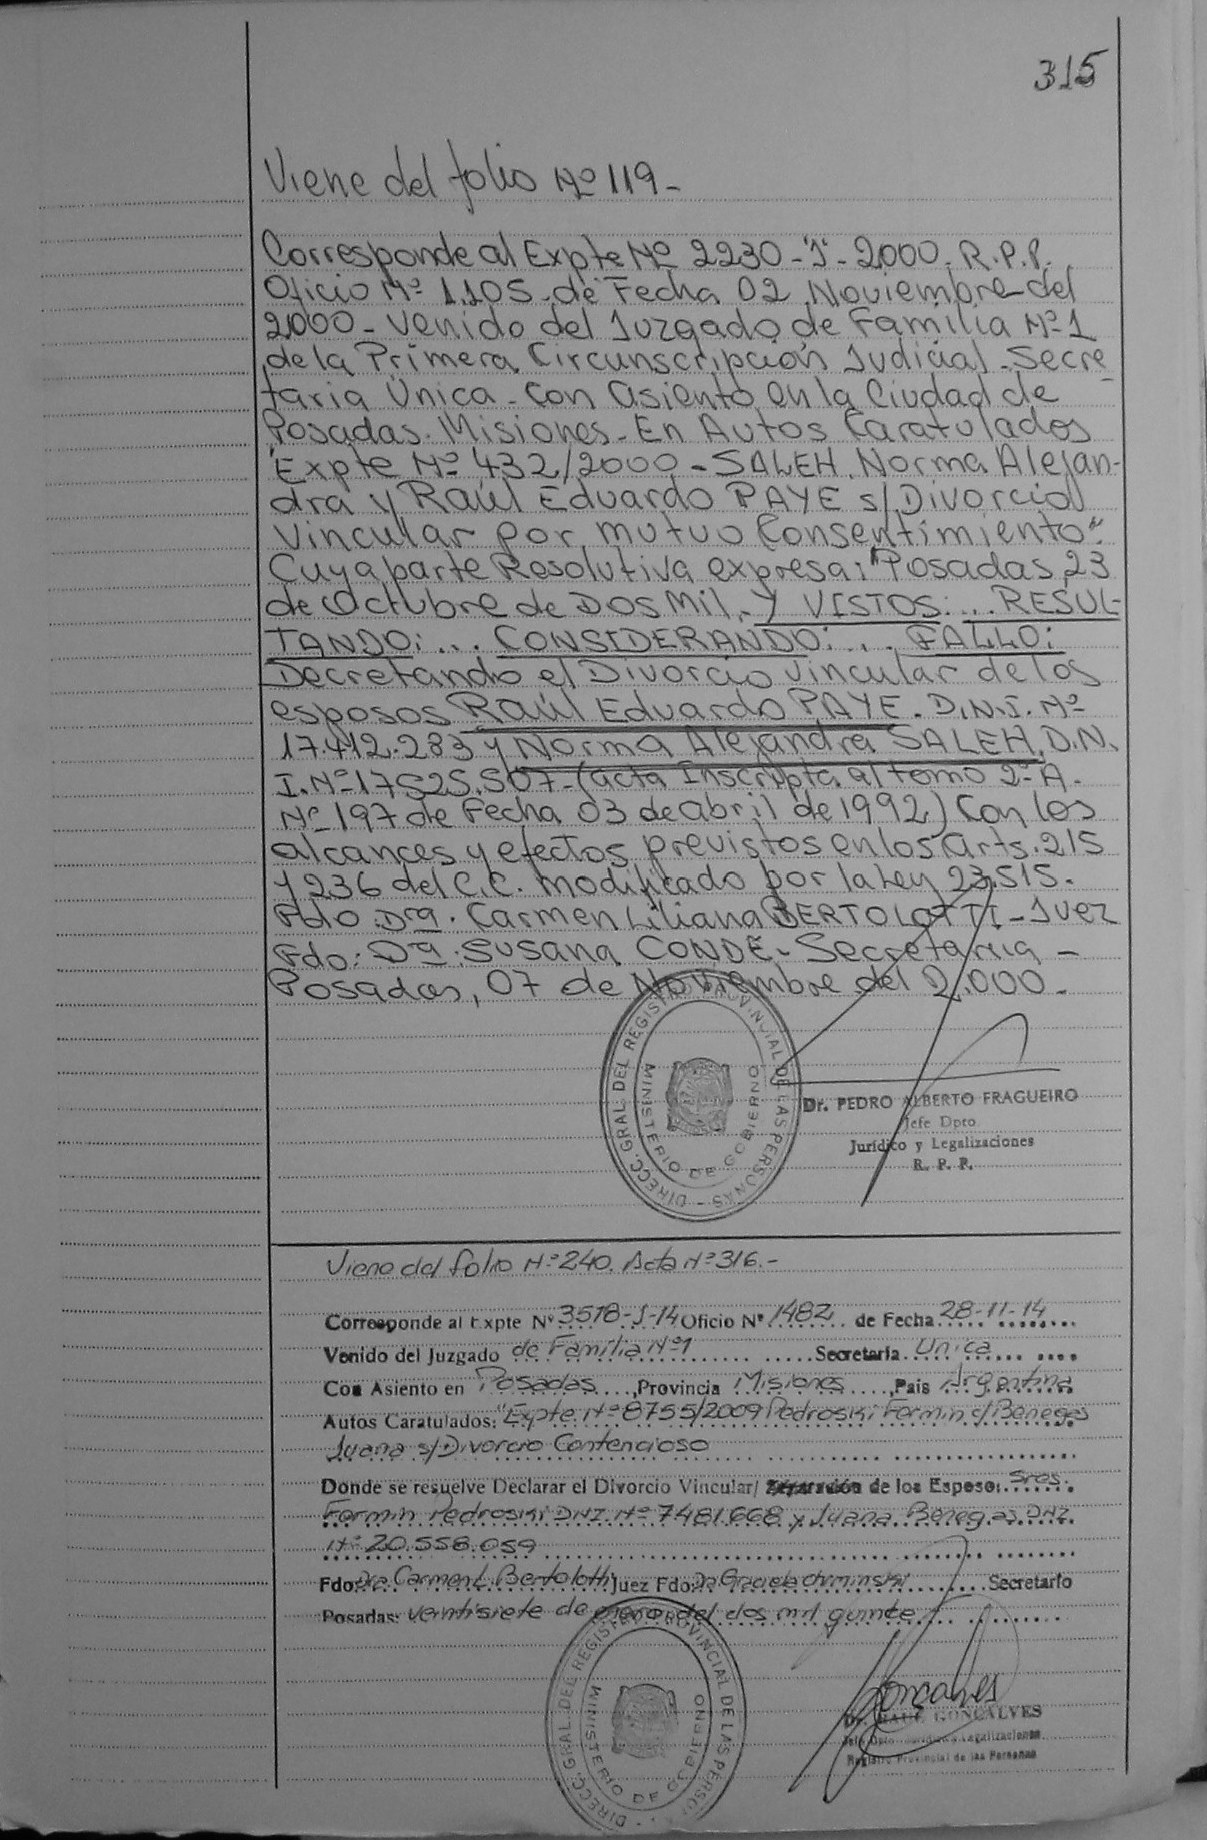 315
Viene del folio Nº 119-
Corresponde al Expte Nº 2230-"J"-2000. R.P.P.
Oficio Nº 1.105-de Fecha 02 Noviembre del
2000- Venido del Juzgado de Familia Nº 1
de la Primera Circunscripción Judicial-Secre-
taria Unica-con asiento en la Ciudad de
Posadas. Misiones-En Autos Caratulados
"Expte Nº 432/2000-SALEH, Norma Alejan-
dra y Raúl Eduardo PAYE s/Divorcio
Vincular por mutuo Consentimiento"
Cuya parte Resolutiva expresa: "Posadas, 23
de Octubre de Dos Mil, Y VISTOS:... RESUL-
TANDO:... CONSIDERANDO:... FALLO:
Decretando el Divorcio Vincular de los
esposos Raúl Eduardo PAYE. D.N.I. Nº
17.412.283 y Norma Alejandra SALEH, D.N.
I. Nº 17.525.507-(acta Inscripta al tomo 2º A.
Nº 197 de Fecha 03 de abril de 1992) Con los
alcances y efectos previstos en los Arts. 215
y 236 del C.C. modificado por la Ley 23.515.
Fdo. Dra. Carmen Liliana BERTOLOTTI-Juez
Fdo: Dra. Susana CONDE-Secretaria-
Posadas, 07 de Noviembre del 2.000.
DIRECC. GRAL. DEL REGISTRO PROVINCIAL DE LAS PERSONAS
MINISTERIO DE GOBIERNO
Dr. PEDRO ALBERTO FRAGUEIRO
Jefe Dpto
Jurídico y Legalizaciones
R. P. P.
Viene del folio Nº 240. Acta Nº 316.-
Corresponde al Expte Nº 3578-J-14 Oficio Nº 1482 de Fecha 28-11-14
Venido del Juzgado de Familia Nº1 Secretaría Unica
Con Asiento en Posadas, Provincia Misiones, Pais Argentina
Autos Caratulados: "Expte. Nº 8755/2009 Pedroski Fermin c/Benegas
Juana s/Divorcio Contencioso
Donde se resuelve Declarar el Divorcio Vincular/ Separación de los Esposos Sres.
Fermin Pedroski DNI. Nº 7481.668 y Juana Benegas DNI.
Nº 20.558.059
Fdo: Dra Carmen L. Bertolotti Juez Fdo: Secretario
Posadas: veintisiete de enero del dos mil quince
DIRECC. GRAL. DEL REGISTRO PROVINCIAL DE LAS PERSONAS
MINISTERIO DE GOBIERNO
Goncalves
Dr. RAUL GONCALVES
Jefe Dpto Jurídico y Legalizaciones
Registro Provincial de las Personas